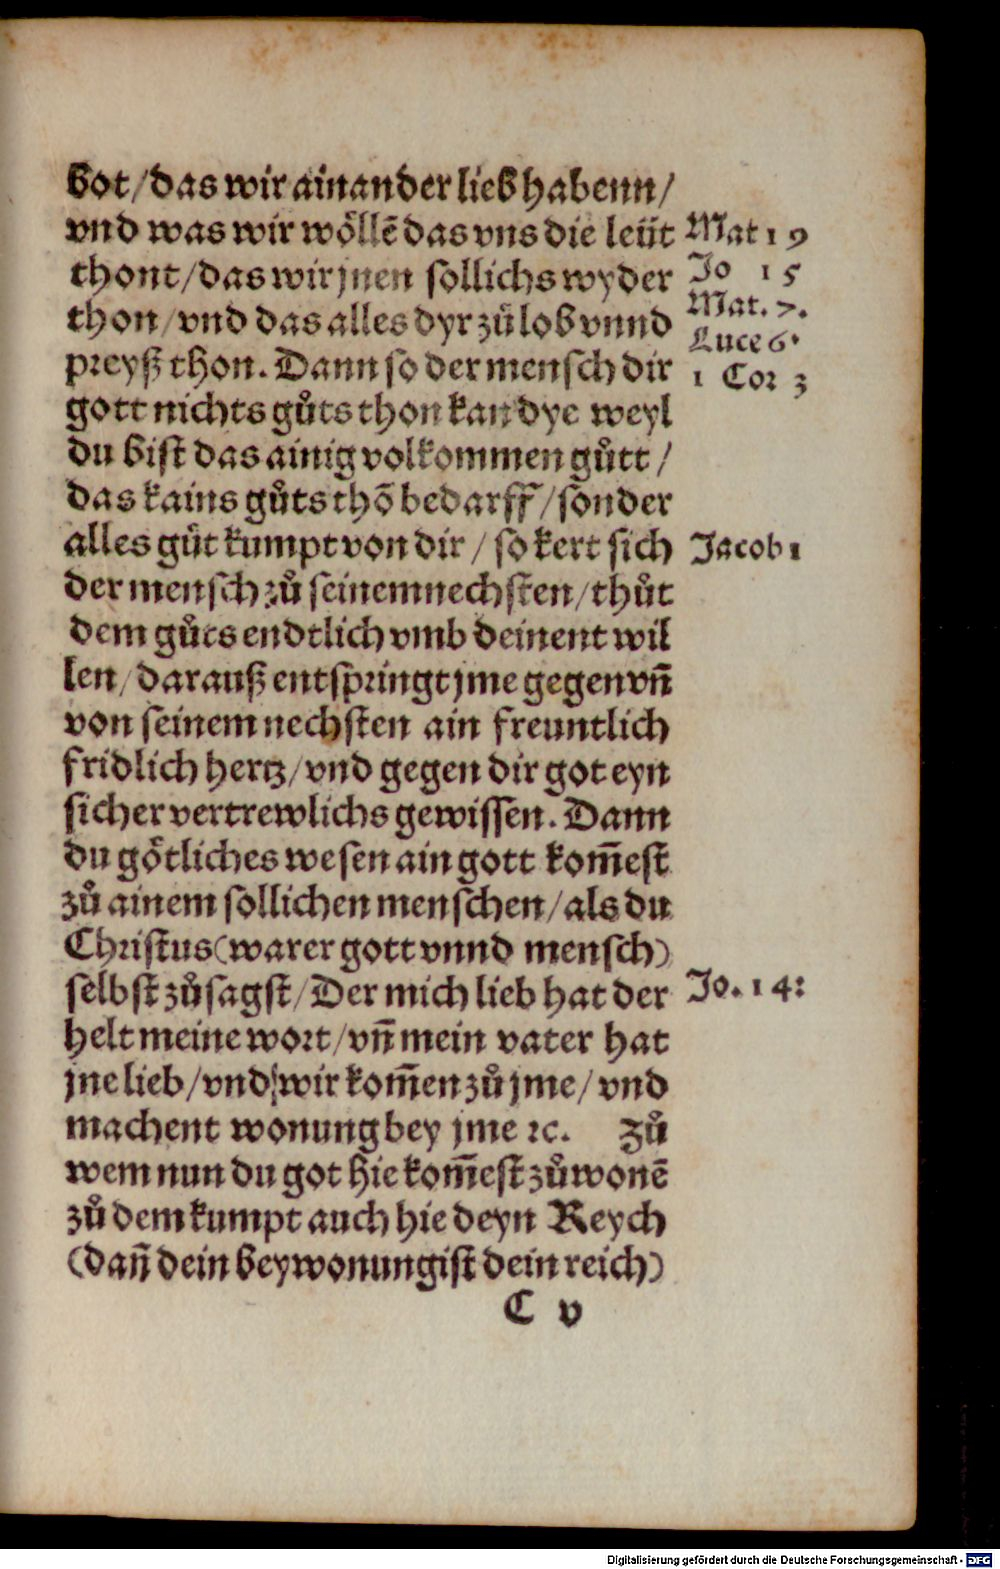 bot/das wir ainander lieb habenn/
vnd was wir wöllē das vns die leüt
thont/das wir jnen sollichs wyder
thon/vnd das alles dyr zů lob vnnd
preyß thon. Dann so der mensch dir
gott nichts gůts thon kan dye weyl
du bist das ainig volkommen gůtt/
das kains gůts thō bedarff/sonder
alles gůt kumpt von dir/so kert sich
der mensch zů seinem nechsten/thůt
dem gůts endtlich vmb deinent wil
len/darauß entspringt jme gegen vn̄
von seinem nechsten ain freuntlich
fridlich hertz/vnd gegen dir got eyn
sicher vertrewlichs gewissen. Dann
du götliches wesen ain gott kom̄est
zů ainem sollichen menschen/als du
Christus(warer gott vnnd mensch)
selbst zůsagst/Der mich lieb hat der
helt meine wort/vn̄ mein vater hat
jne lieb/vnd wir kom̄en zů jme/vnd
machent wonung bey jme ꝛc. Zů
wem nun du got hie kom̄est zů wonē
zů dem kumpt auch hie deyn Reych
(dan̄ dein beywonung ist dein reich)
C v
Mat 19
Jo 15
Mat. 7.
Luce 6.
1 Cor 3
Jacob 1
Jo. 14:
Digitalisierung gefördert durch die Deutsche Forschungsgemeinschaft - DFG